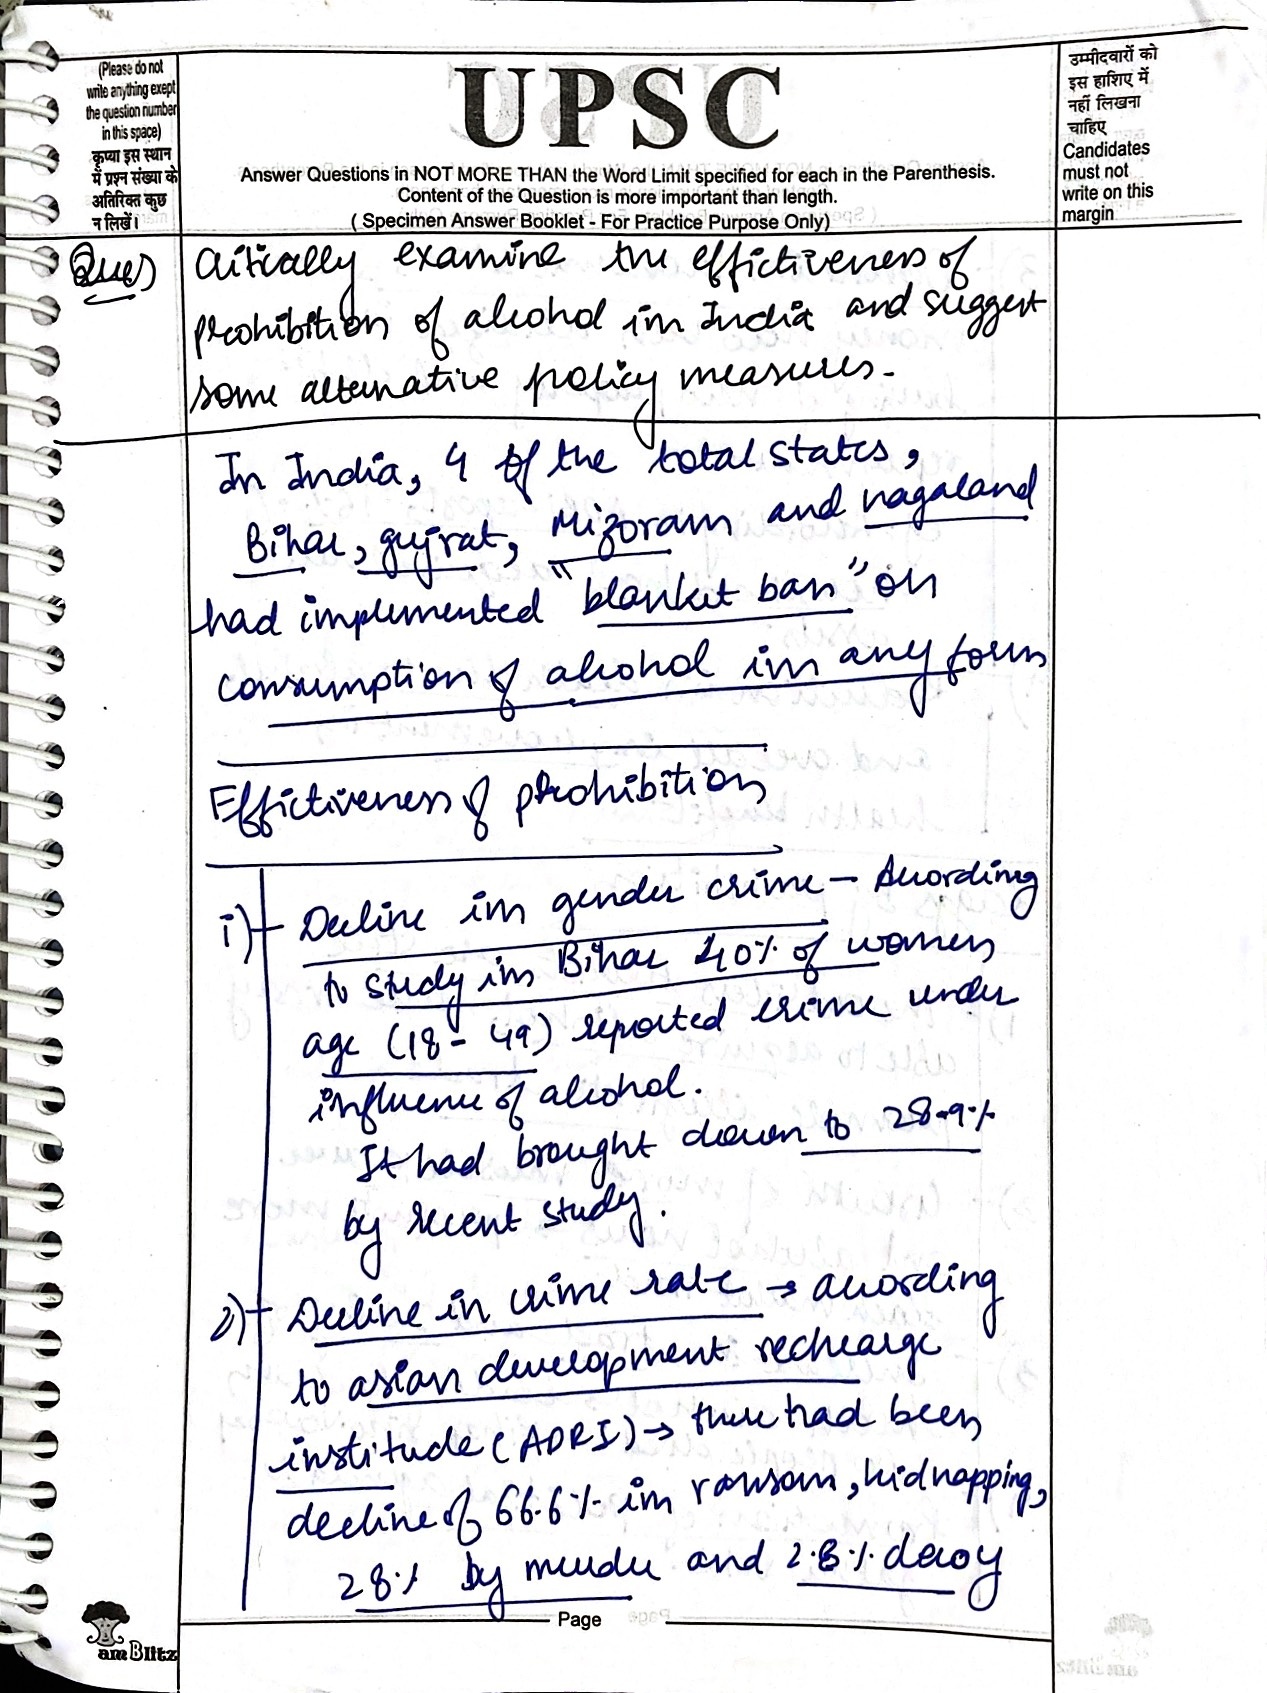 (Please do not
write anything exept
the question number
in this space)
कृप्या इस स्थान
में प्रश्न संख्या के
अतिरिक्त कुछ
न लिखें।
UPSC
Answer Questions in NOT MORE THAN the Word Limit specified for each in the Parenthesis.
Content of the Question is more important than length.
( Specimen Answer Booklet - For Practice Purpose Only)
उम्मीदवारों को
इस हाशिए में
नहीं लिखना
चाहिए
Candidates
must not
write on this
margin
Ques)
Critically examine the effictiveness of
prohibition of alcohol in India and suggest
some alternative policy measures.
In India, 4 of the total states,
Bihar, gujrat, Mizoram and nagaland
had implemented "blanket ban" on
consumption of alcohol in any form
Effictiveness of prohibition
i) Decline in gender crime – According
to study in Bihar 40% of women
age (18 - 49) reported crime under
influence of alcohol.
It had brought down to 28.9%
by recent study.
2) Decline in crime rate → according
to asian development rechearge
institude (ADRI) → there had been
decline of 66.6% in ransom, kidnapping,
28% by murder and 2.3% dacoy
Page
am Blitz